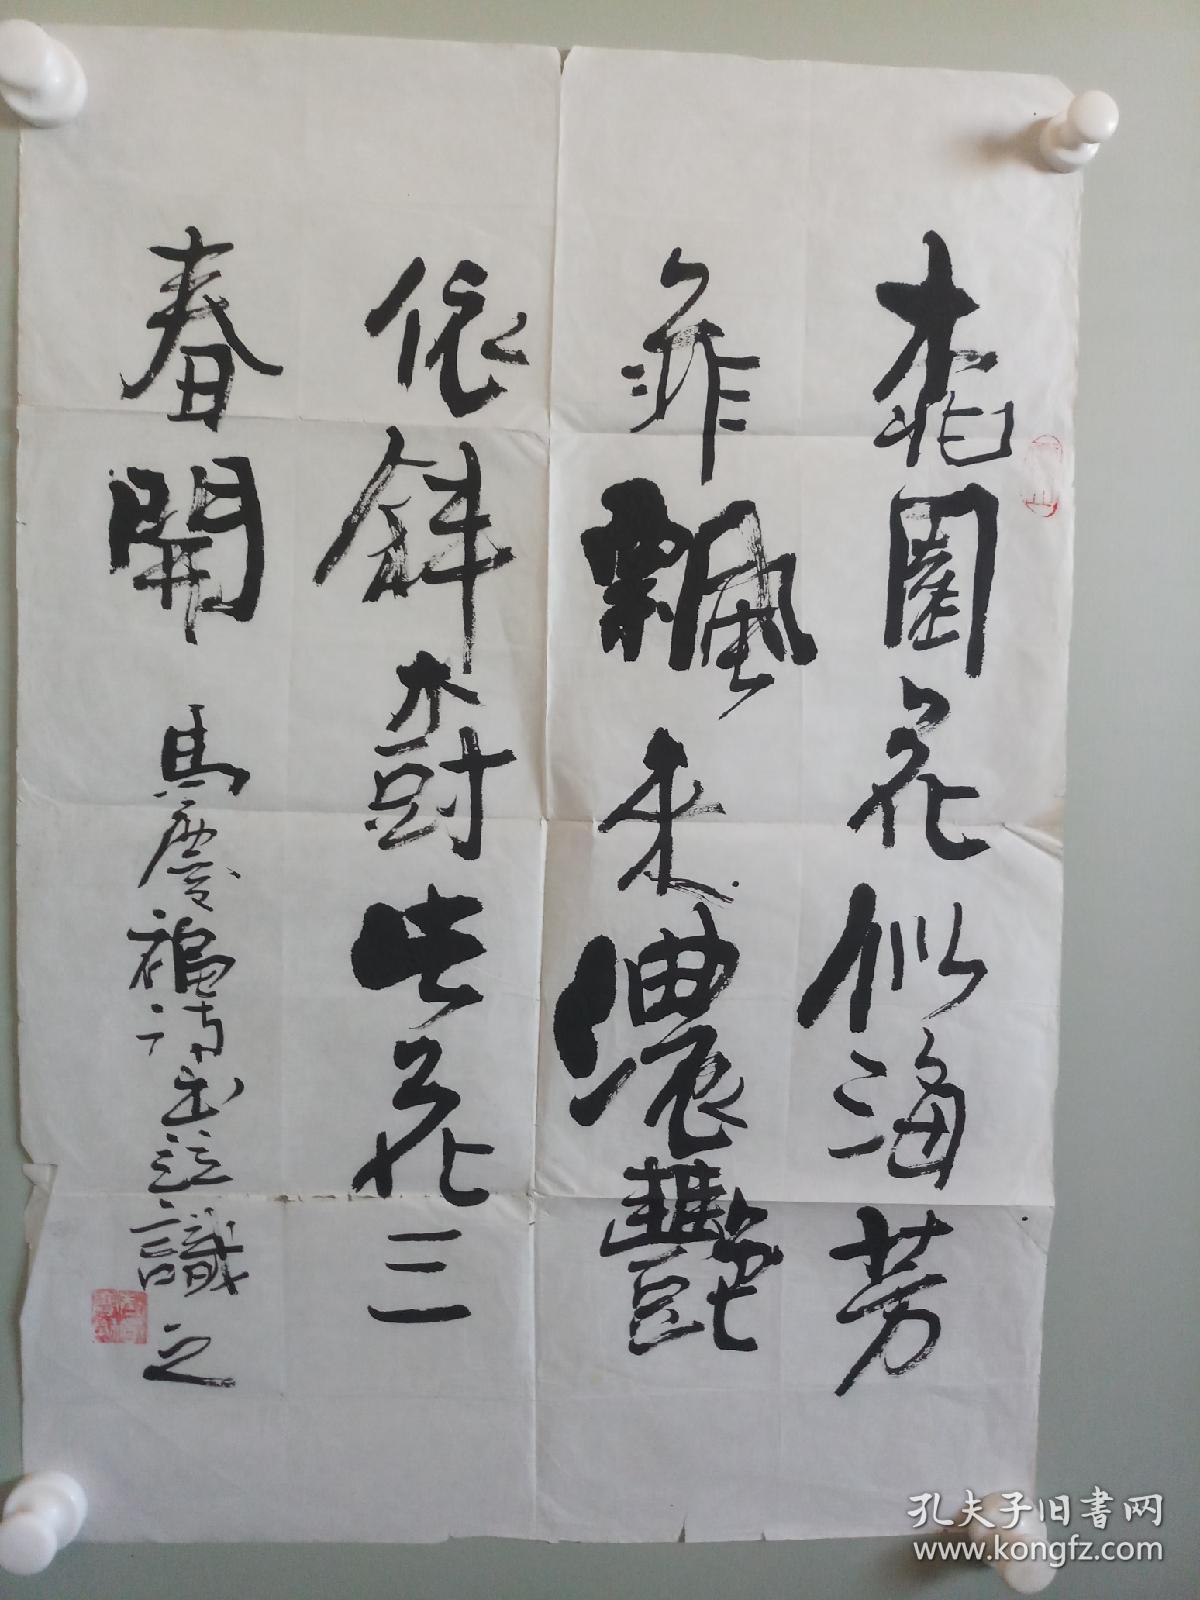 桃園花似海芳
菲飄未濃艷
依斜樹出花三
春開 馬慶福詩書并識之
孔夫子旧書网
www.kongfz.com